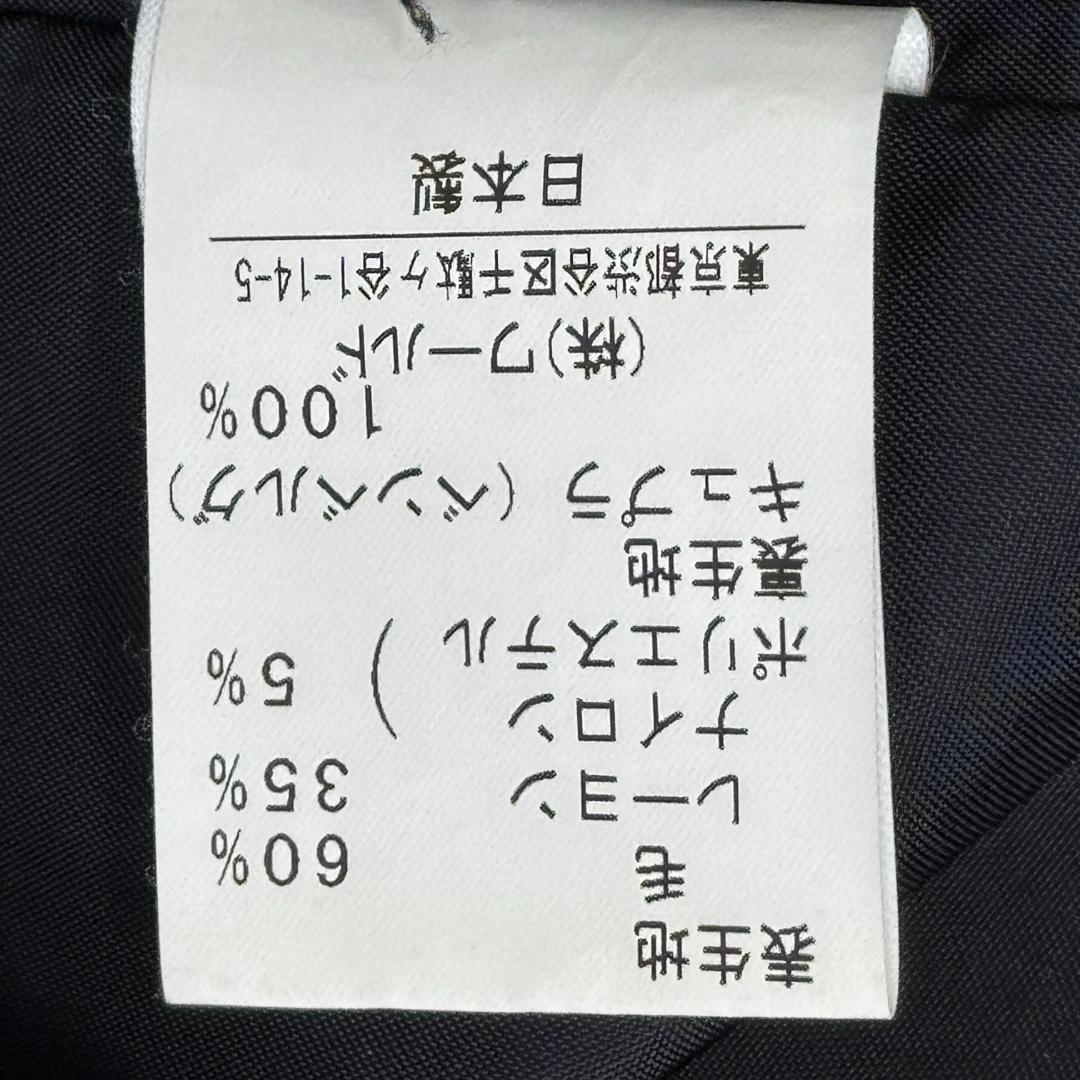 表生地
毛 60%
レーヨン 35%
ナイロン
ポリエステル ) 5%
裏生地
キュプラ (ベンベルグ)
100%
(株)ワールド
東京都渋谷区千駄ケ谷1-14-5
日本製